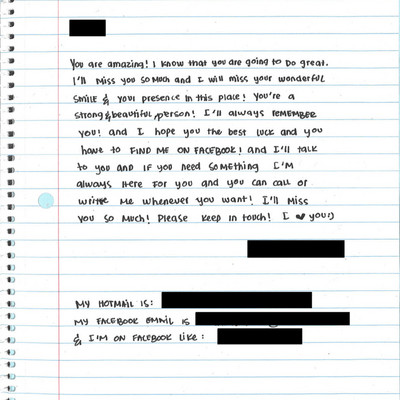 You are amazing! I know that you are going to do great.
I'll miss you so much and I will miss your wonderful
smile & your presence in this place! You're a
strong & beautiful person! I'll always REMEMBER
you! and I hope you the best luck and you
have to FIND ME ON FACEBOOK! and I'll talk
to you AND IF you need something I'M
always Here For you and you can call or
write me whenever you want! I'll Miss
you so Much! Please keep in touch! I ♥ you:)
MY HOTMAIL IS:
MY FACEBOOK EMAIL IS
& I'M ON FACEBOOK LIKE: